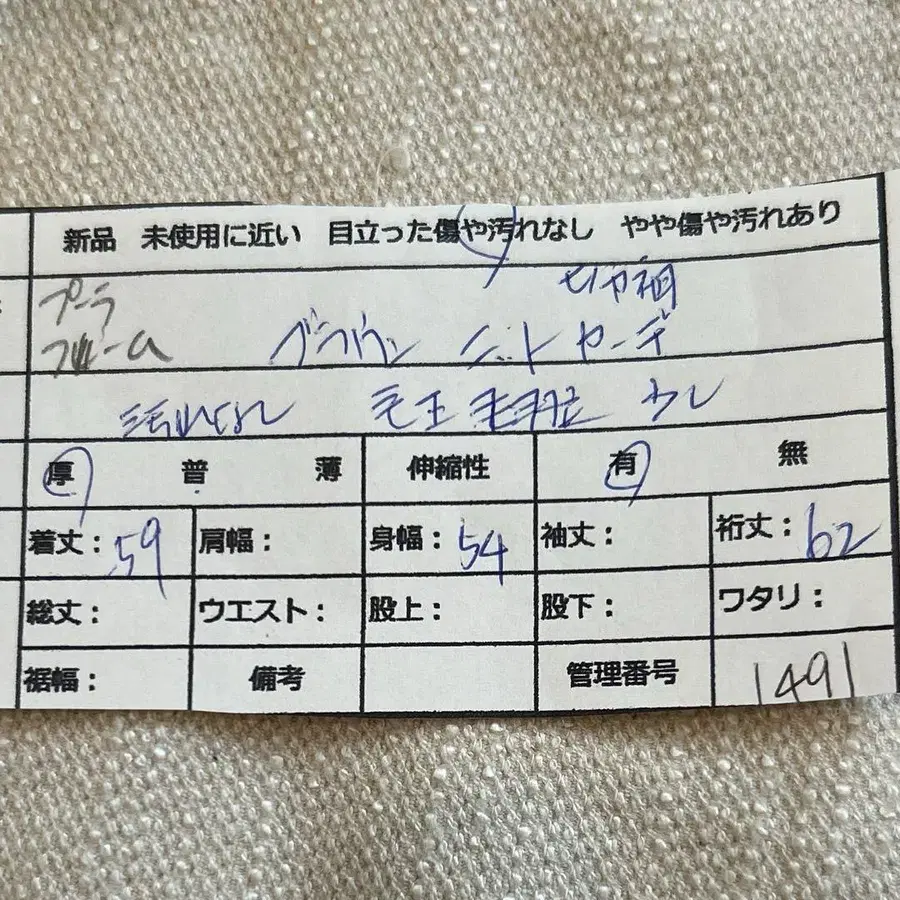 新品 未使用に近い 目立った傷や汚れなし やや傷や汚れあり
プーラ
フルーム ブラウン ニット カーデ
汚れなし 毛玉 毛羽立 少し
厚 普 薄 伸縮性 有 無
着丈：59 肩幅： 身幅：54 袖丈： 裄丈：62
総丈： ウエスト： 股上： 股下： ワタリ：
裾幅： 備考 管理番号 1491